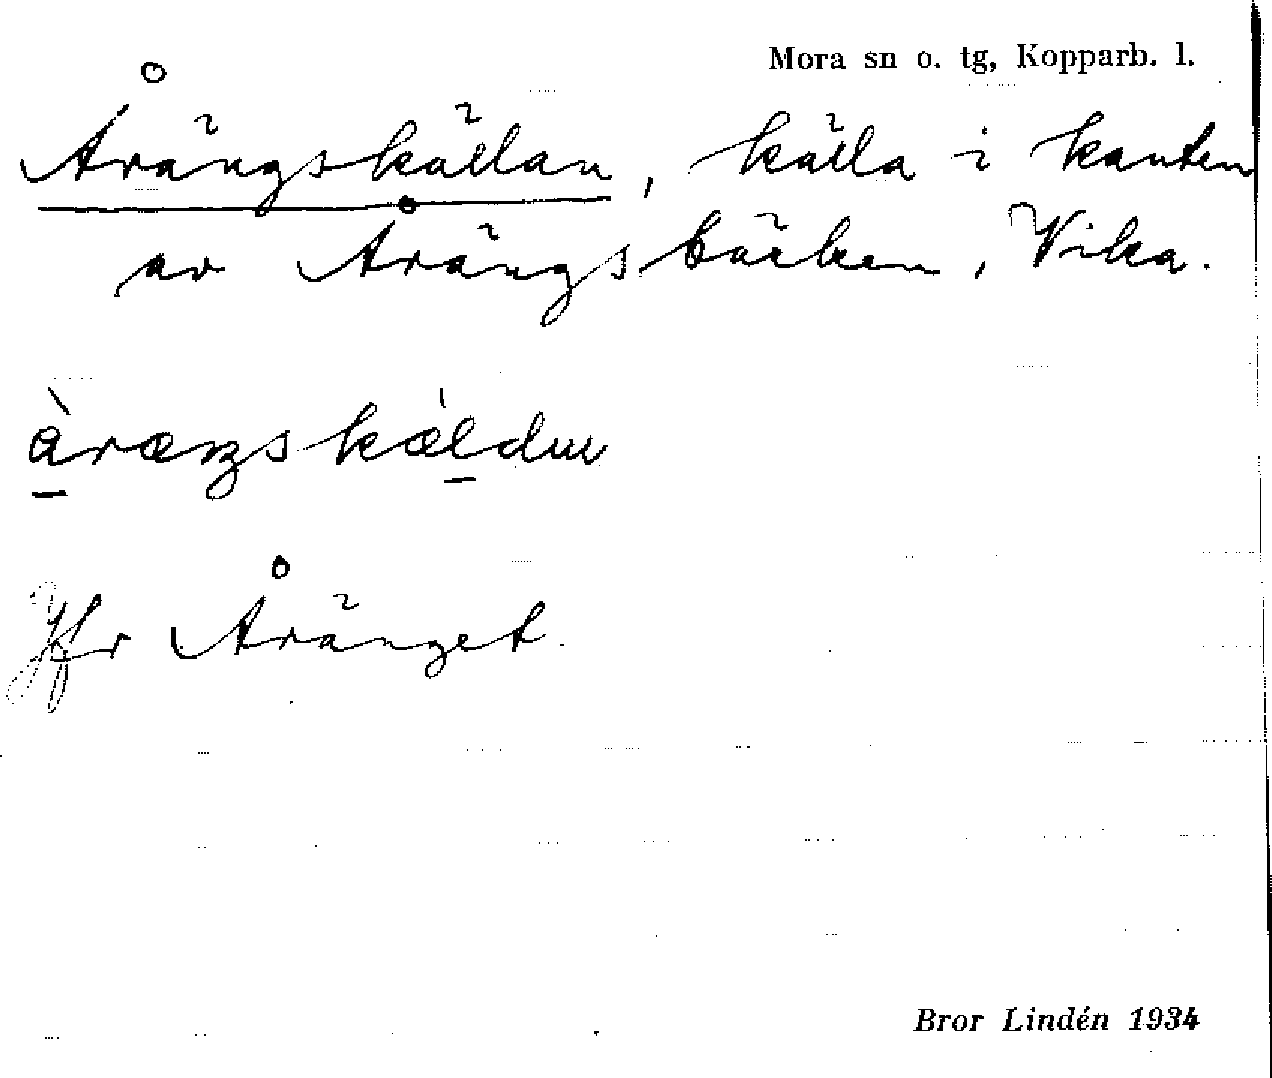 Mora sn o. tg, Kopparb. l.
Årängskällan, källa i kanten
av Årängsbäcken, Vika.
àræŋskæ̀ldu
Jfr Åränget.
Bror Lindén 1934